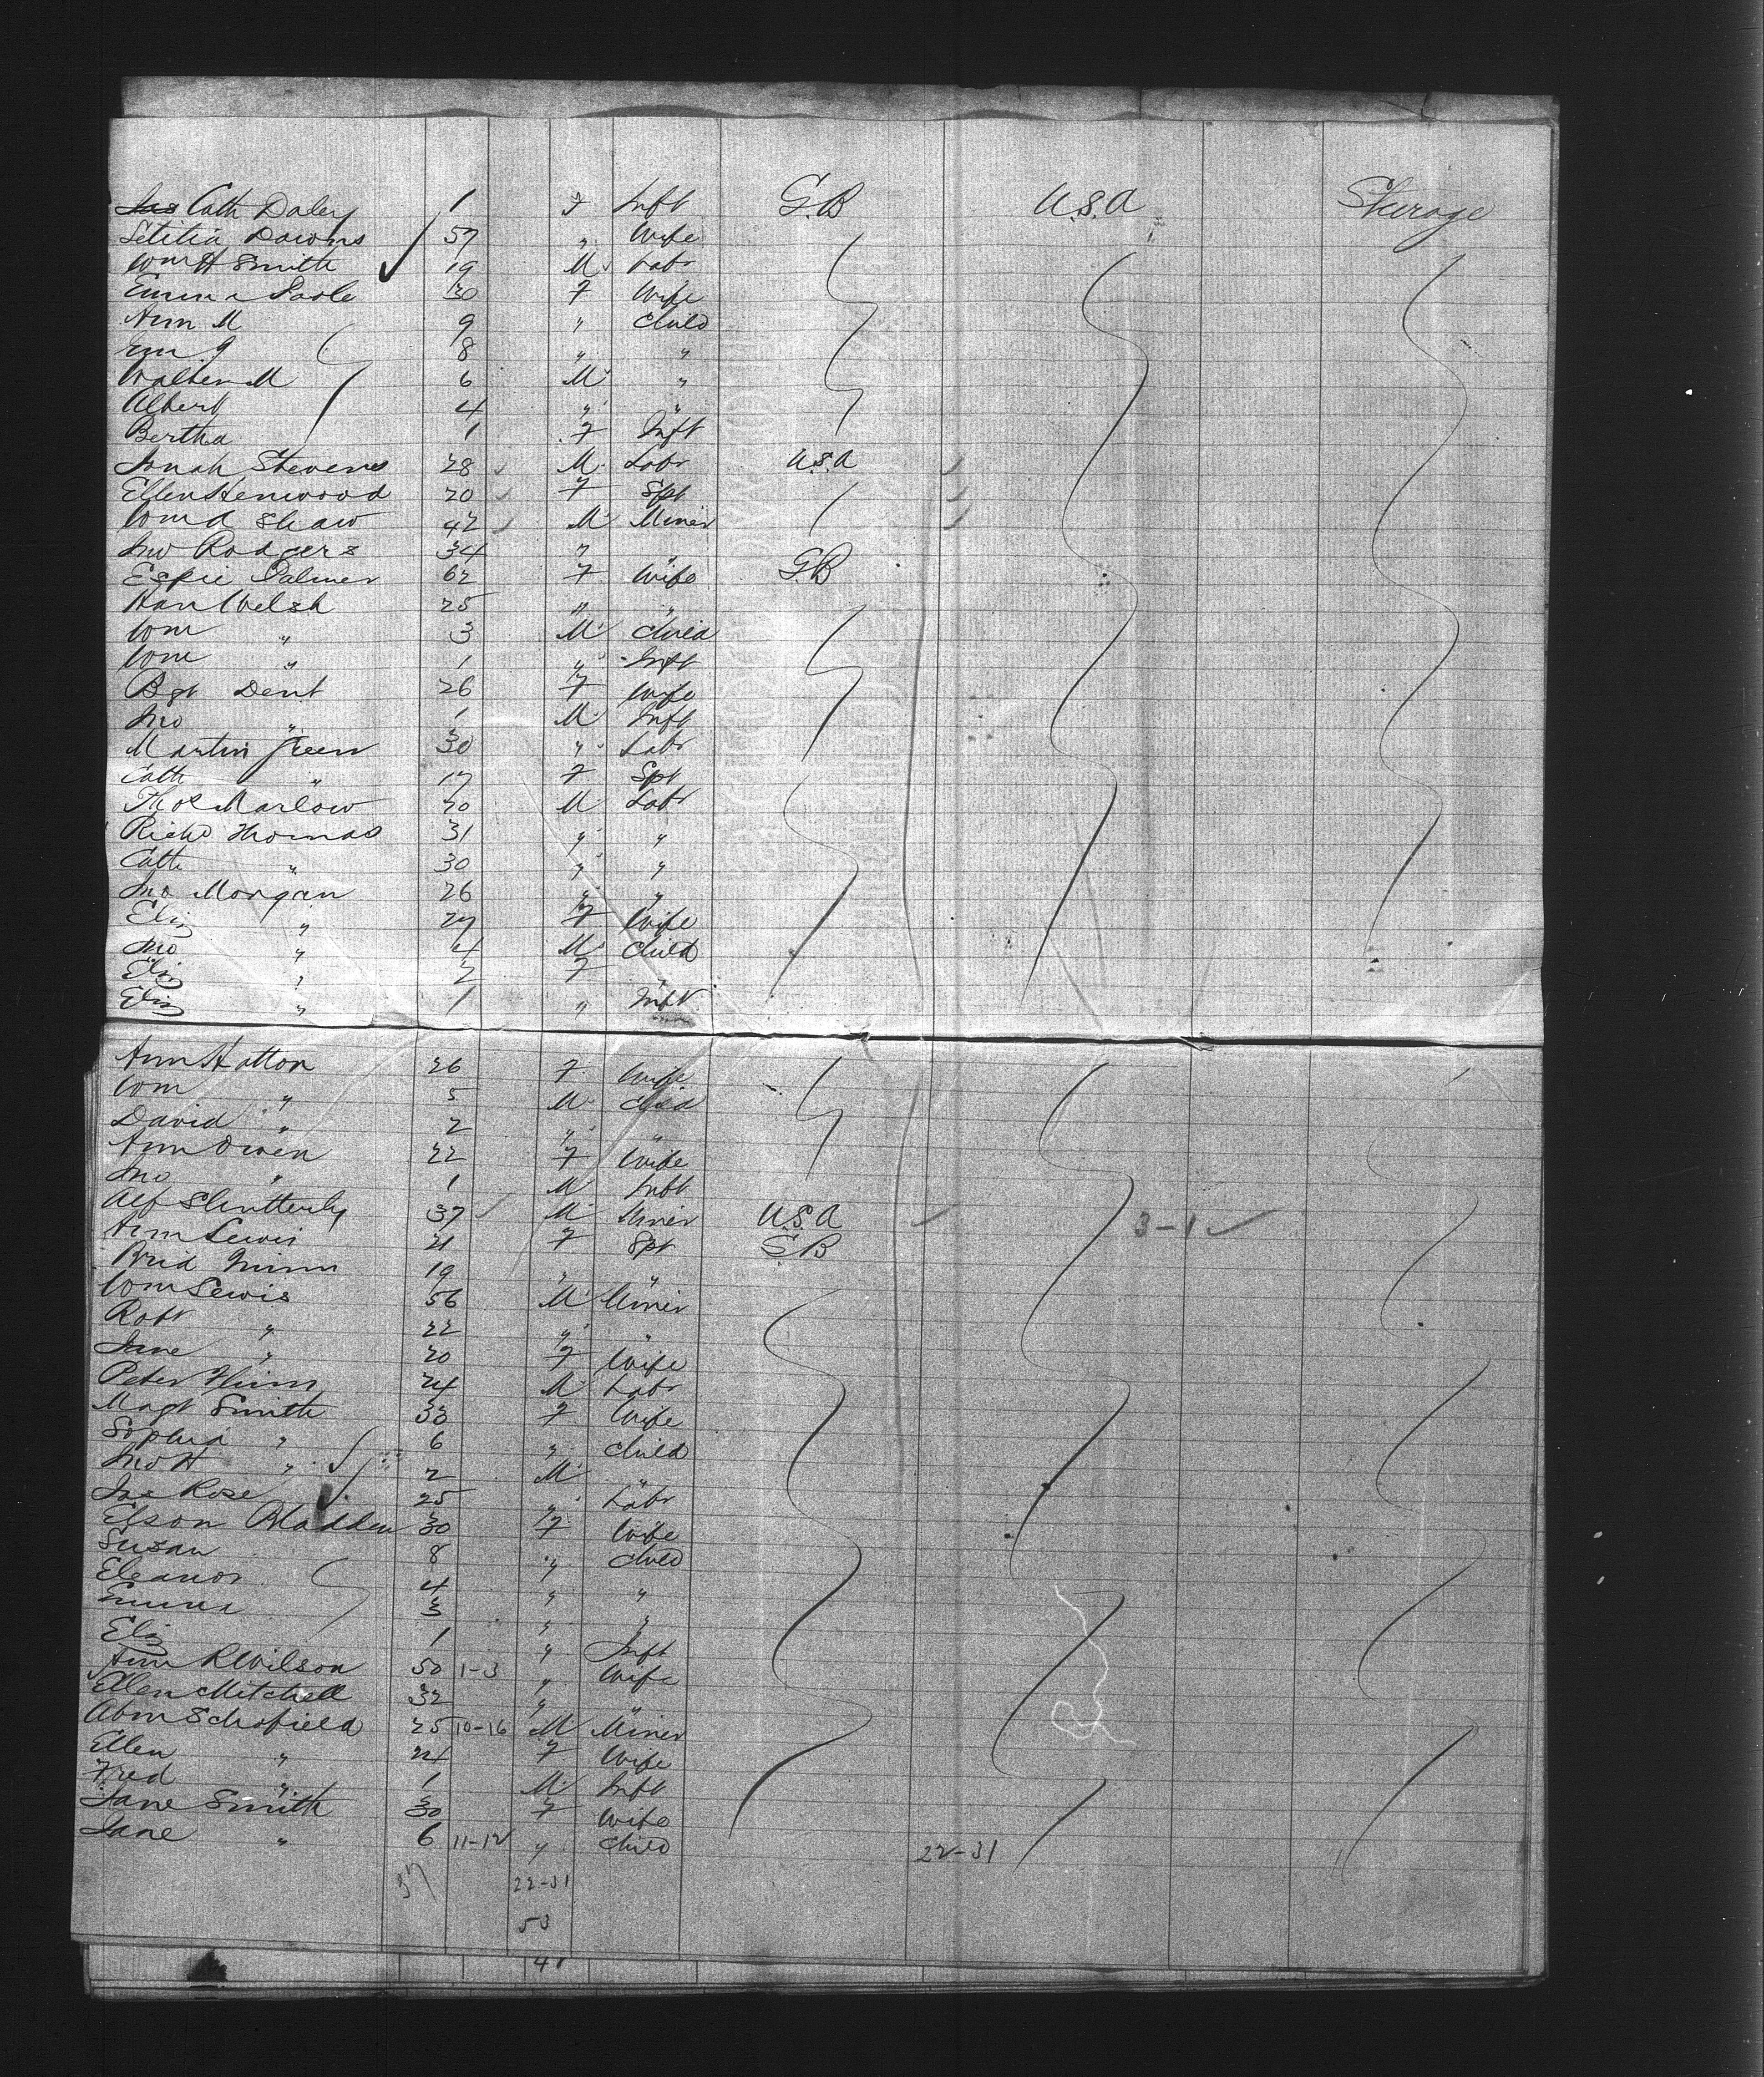 Jas Cath Daley 1 F Inft G.B U.S.A Steerage
Letitia Downs 57 " Wife
Wm H Smith 19 M Labr
Emma Poole 30 F Wife
Ann M 9 " Child
Em J 8 " "
Walter M 6 M "
Albert 4 " "
Bertha 1 F Inft
Jonah Stevens 28 M Labr U.S.A
Ellen Henwood 20 F Spt
Wm A Shaw 42 M Miner
Jno Rodgers 34 " " G.B
Espie Palmer 62 F Wife
Han Welsh 25 " "
Wm " 3 M Child
Wm " 1 " Inft
Bgt Dent 26 F Wife
Jno " 1 M Inft
Martin Green 30 " Labr
Cath " 17 F Spt
Thos Marlow 20 M Labr
Richd Thomas 31 " "
Cath " 30 " "
Jno Morgan 26 " "
Eliz " 27 F Wife
Jno " 4 M Child
Eliz " 2 F "
Eliz " 1 " Inft
Ann Hatton 26 F Wife
Wm " 5 M Child
David " 2 " "
Ann Owen 22 F Wife
Jno " 1 M Inft
Alf Slutterly 37 M Miner U.S.A 3-1
Ann Lewis 21 F Spt G.B
Brid 19 " "
Wm Lewis 56 M Miner
Robt " 22 " "
Jane " 20 F Wife
Peter 24 M Labr
Magt Smith 33 F Wife
Sophia " 6 " Child
Jno H " 2 M "
Jas Rose 25 " Labr
Elson Bladden 30 F Wife
Susan 8 " Child
Eleanor 4 " "
Emma 3 " "
Eliz 1 " Inft
Ann R Wilson 50 1-3 " Wife
Ellen Mitchell 32 " "
Abm Schofield 25 10-16 M Miner
Ellen " 24 F Wife
Fred " 1 M Inft
Jane Smith 30 F Wife
Jane " 6 11-12 " Child 22-31
37 22-31
53
41